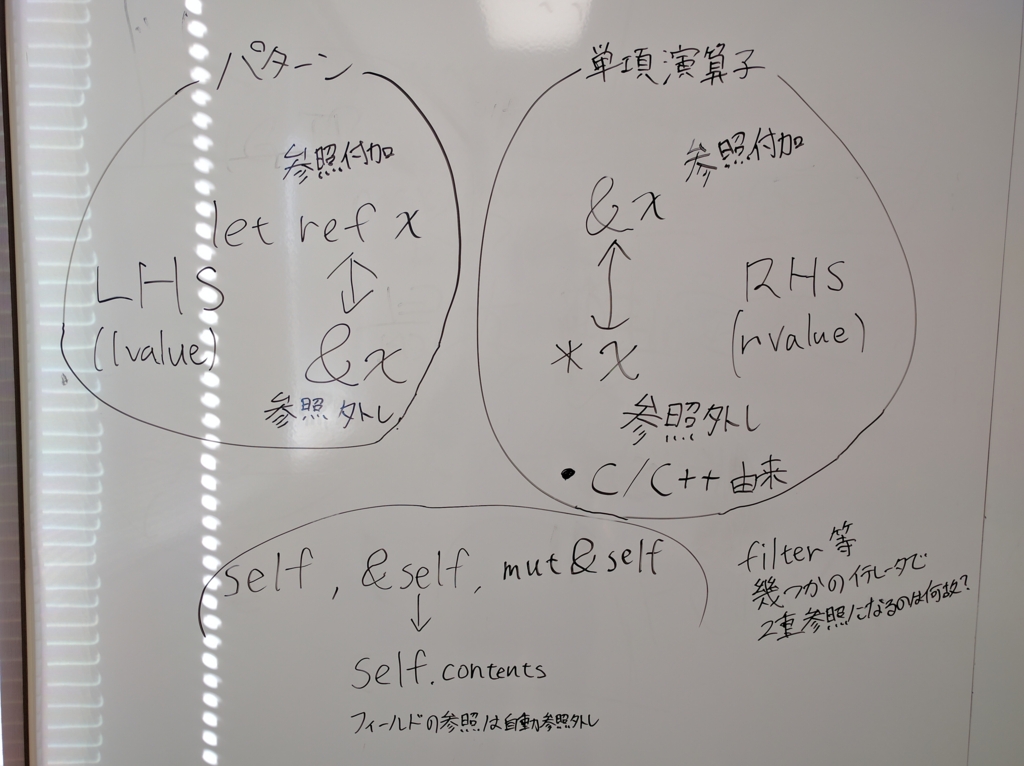 パターン
参照付加
let ref x
LHS
(lvalue)
&x
参照外し
単項演算子
参照付加
&x
RHS
(rvalue)
*x
参照外し
• C/C++由来
self, &self, mut&self
self.contents
フィールドの参照は自動参照外し
filter等
幾つかのイテレータで
2重参照になるのは何故?